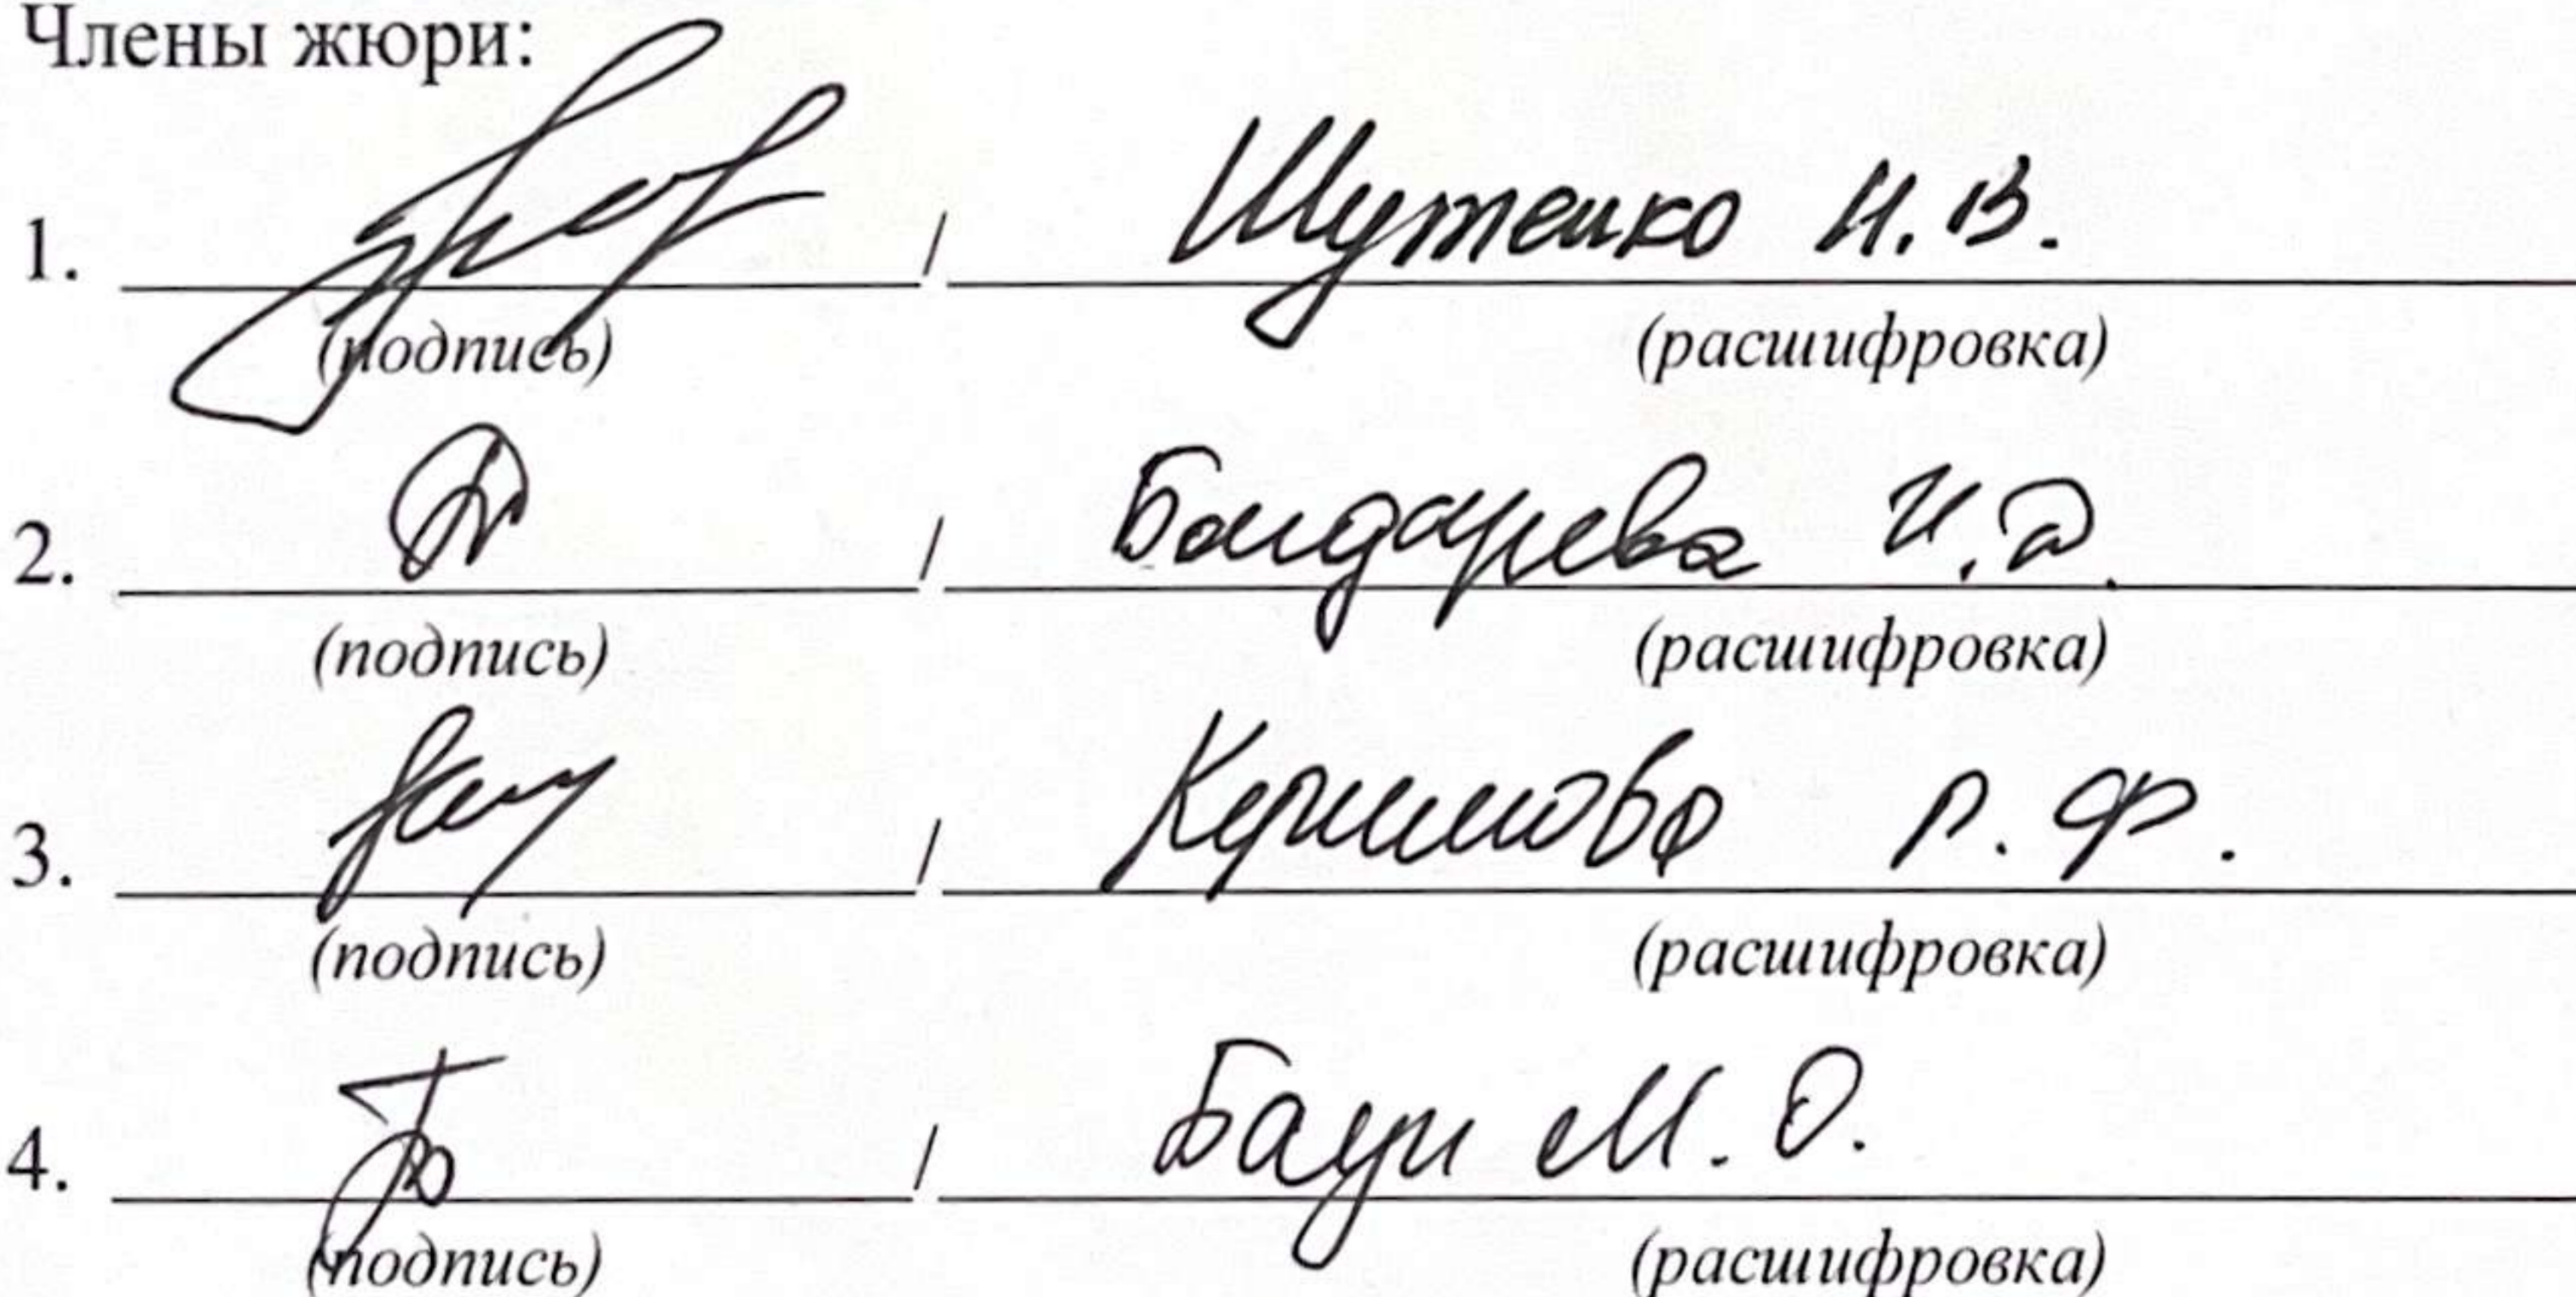 Члены жюри:
1. / Шутенко Н.В.
(подпись) (расшифровка)
2. / Бондарева И.Д.
(подпись) (расшифровка)
3. / Керимова Г. Ф.
(подпись) (расшифровка)
4. / Баун М. О.
(подпись) (расшифровка)